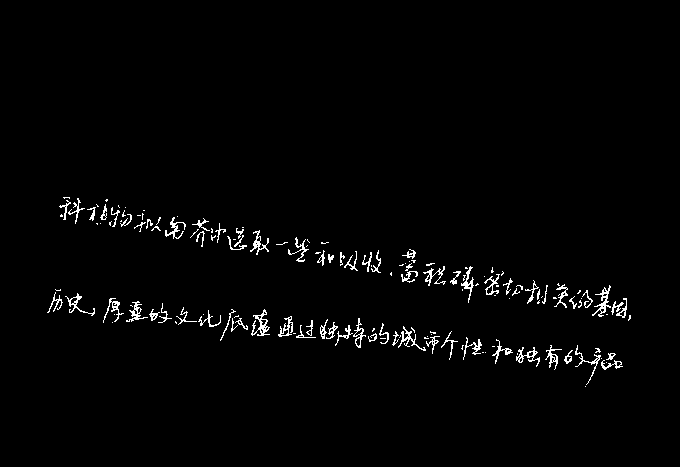 科植物拟南芥中选取一些和吸收、蓄积磷密切相关的基因,
历史,厚重的文化底蕴通过独特的城市个性和独有的产品